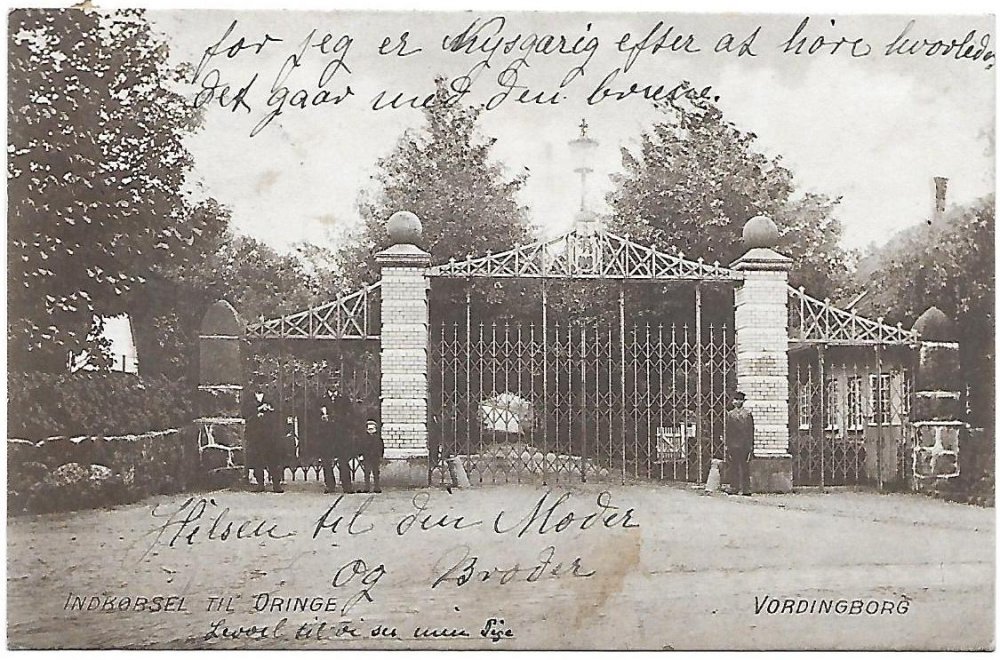 for jeg er Nysgarig efter at höre hvorledes
det gaar med den brune.
Hilsen til din Moder
og Broder
INDKØRSEL TIL ORINGE
VORDINGBORG
til vi ses min Pige